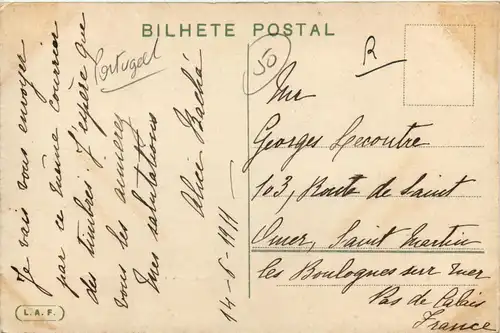 BILHETE POSTAL
Portugal
50
R
Je vais vous envoyer
par ce même courrier
des timbres. J'espère que
vous les aimerez
Mes salutations
Alice
14-6-1911-
Mr
Georges Lecoutre
103, Route de Saint
Omer, Saint Martin
les Boulognes sur mer
Pas de Calais
France
L.A.F.